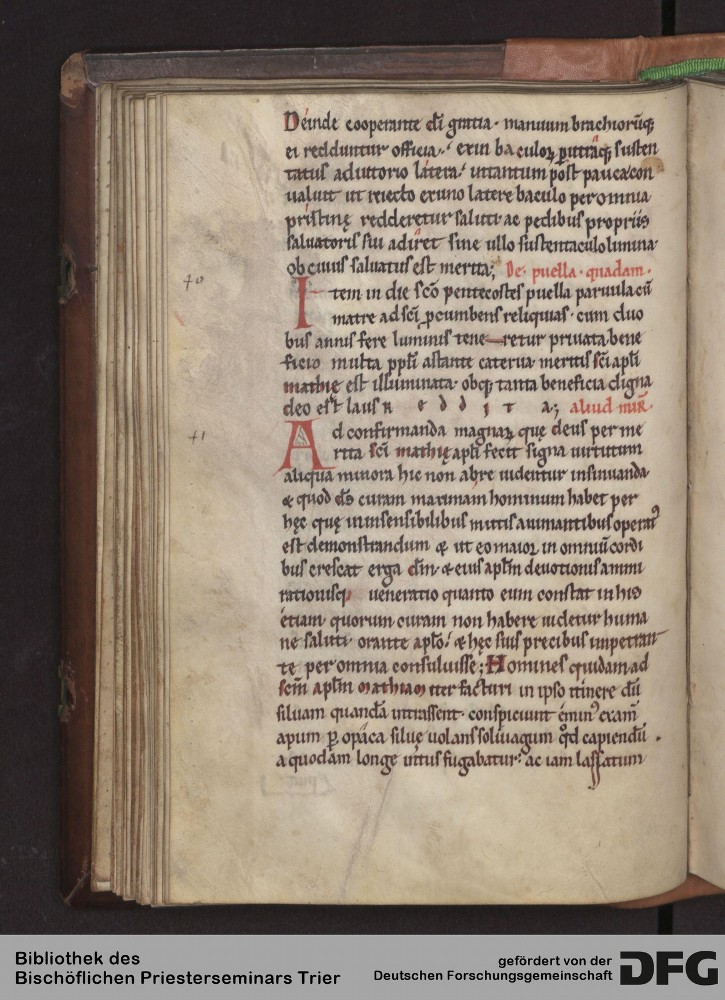 Deinde cooperante dī gratia · manuum brachiorūq;
ei redduntur officia · exin baculoꝝ p utrāq; susten
tatus adiutorio latera · intantum post pauca con
ualuit ut reiecto ex uno latere baculo per omnia
pristinę redderetur saluti · ac pedibus propriis
saluatoris sui adiret sine ullo sustentaculo lumina ·
ob cuius saluatus est merita; De · puella · quadam ·
70
Item in die scō pentecostes puella paruula cū
matre ad scī pcumbens reliquias · cum duo
bus annis fere luminis teneretur priuata bene
ficio multa ppłi astante caterua · meritis scī apłi
mathię est illuminata · obq; tanta beneficia digna
deo est laus R e d d i t a; aliud mir̄ ·
71
Ad confirmanda magnaꝝ quę deus per me
rita scī mathię apłi fecit signa uirtutum
aliqua minora hic non ab re uidentur insinuanda
& quod ds̄ curam maximam hominum habet per
hęc quę in insensibilibus
est demonstrandum & ut eo maior in omniū cordi
bus crescat erga dm̄ · & eius apłm deuotionis animi
rationisq; ueneratio quanto eum constat in his
etiam quorum curam non habere uidetur huma
nę saluti · orante apło · & hęc suis precibus impetran
te per omnia consuluisse; Homines quidam ad
scm̄ apłm mathiam iter facturi in ipso itinere dū
siluam quandā intrassent · conspiciunt eminus exam̄
apum p opaca siluę uolans soliuagum qd capiendū ·
a quodam longe uisus fugabatur · ac iam lassatum
Bibliothek des
Bischöflichen Priesterseminars Trier
gefördert von der
Deutschen Forschungsgemeinschaft
DFG